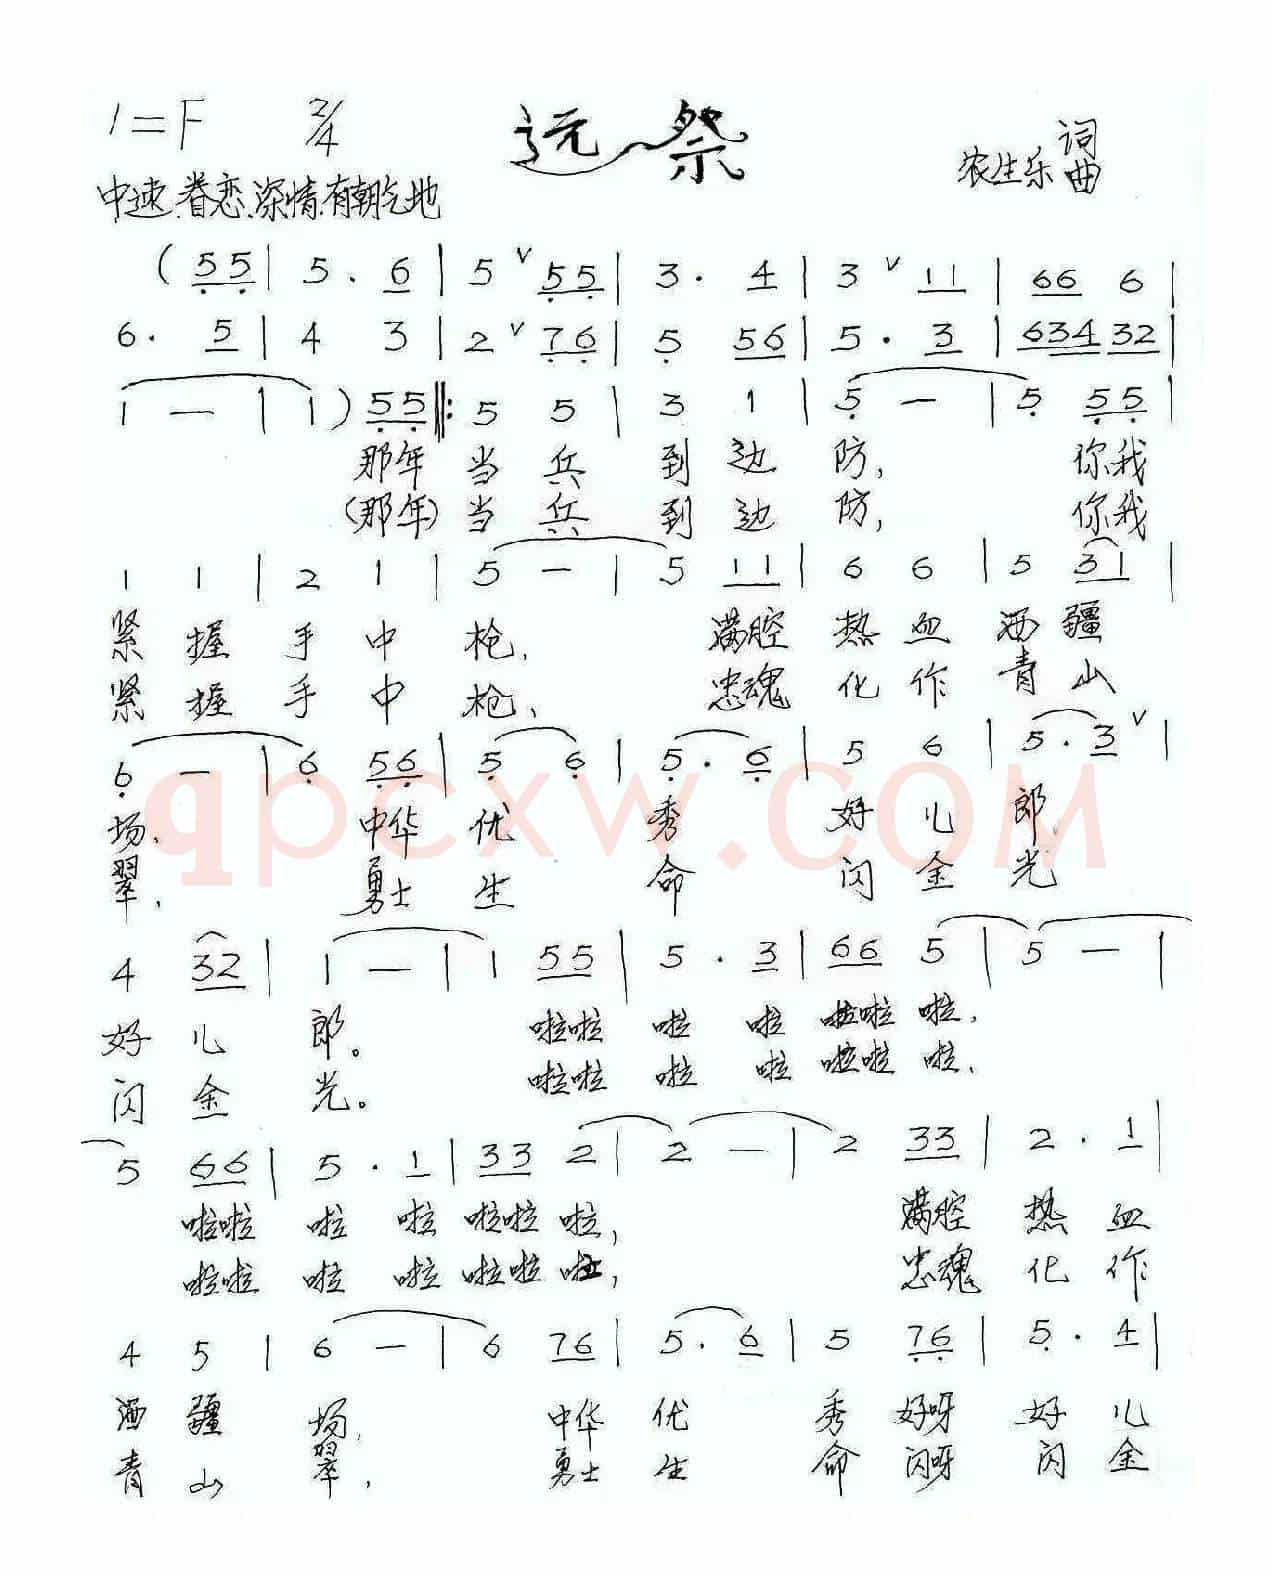 1=F 2/4 远祭 农生乐 词曲
中速.眷恋.深情.有朝气地
( 5 5 | 5 . 6 | 5 ∨ 5 5 | 3 . 4 | 3 ∨ 1 1 | 6 6 6 |
6 . 5 | 4 3 | 2 ∨ 7 6 | 5 5 6 | 5 . 3 | 6 3 4 3 2 |
1 — | 1 ) 5 5 ‖: 5 5 | 3 1 | 5 — | 5 5 5 |
那年 当 兵 到 边 防, 你我
(那年) 当 兵 到 边 防, 你我
1 1 | 2 1 | 5 — | 5 1 1 | 6 6 | 5 3 1 |
紧 握 手 中 枪, 满腔 热 血 洒 疆
紧 握 手 中 枪, 忠魂 化 作 青 山
6 — | 6 5 6 | 5 6 | 5 . 6 | 5 6 | 5 . 3 ∨ |
场, 中华 优 秀 好 儿 郎,
翠, 勇士 生 命 闪 金 光
qpcxw.COM
4 3 2 | 1 — | 1 5 5 | 5 . 3 | 6 6 5 | 5 — |
好 儿 郎。 啦啦 啦 啦 啦啦 啦,
闪 金 光。 啦啦 啦 啦 啦啦 啦,
5 6 6 | 5 . 1 | 3 3 2 | 2 — | 2 3 3 | 2 . 1 |
啦啦 啦 啦 啦啦 啦, 满腔 热 血
啦啦 啦 啦 啦啦 啦, 忠魂 化 作
4 5 | 6 — | 6 7 6 | 5 . 6 | 5 7 6 | 5 . 4 |
洒 疆 场, 中华 优 秀 好呀 好 儿
青 山 翠, 勇士 生 命 闪呀 闪 金